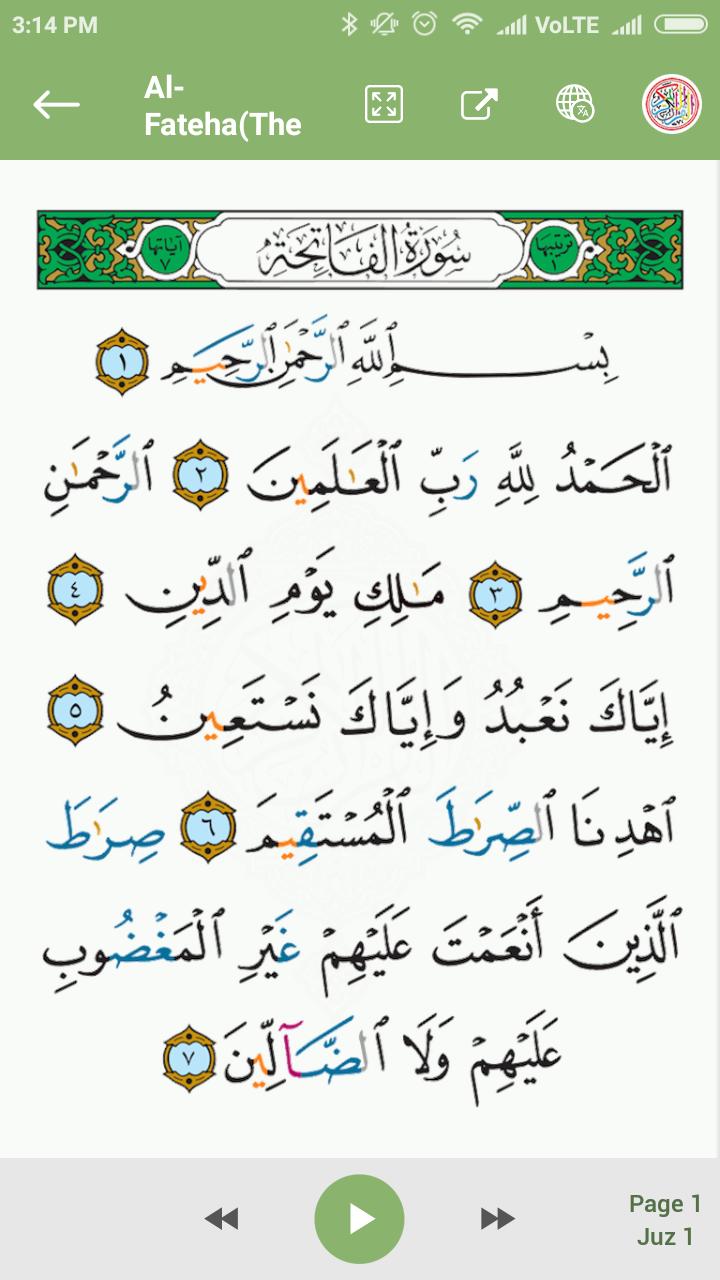 3:14 PM VoLTE
Al-
Fateha(The
ترتيبها ١ سُورَةُ الفَاتِحَةِ آياتها ٧
بِسْمِ ٱللَّهِ ٱلرَّحْمَٰنِ ٱلرَّحِيمِ ١
ٱلْحَمْدُ لِلَّهِ رَبِّ ٱلْعَٰلَمِينَ ٢ ٱلرَّحْمَٰنِ
ٱلرَّحِيمِ ٣ مَٰلِكِ يَوْمِ ٱلدِّينِ ٤
إِيَّاكَ نَعْبُدُ وَإِيَّاكَ نَسْتَعِينُ ٥
ٱهْدِنَا ٱلصِّرَٰطَ ٱلْمُسْتَقِيمَ ٦ صِرَٰطَ
ٱلَّذِينَ أَنْعَمْتَ عَلَيْهِمْ غَيْرِ ٱلْمَغْضُوبِ
عَلَيْهِمْ وَلَا ٱلضَّآلِّينَ ٧
Page 1
Juz 1